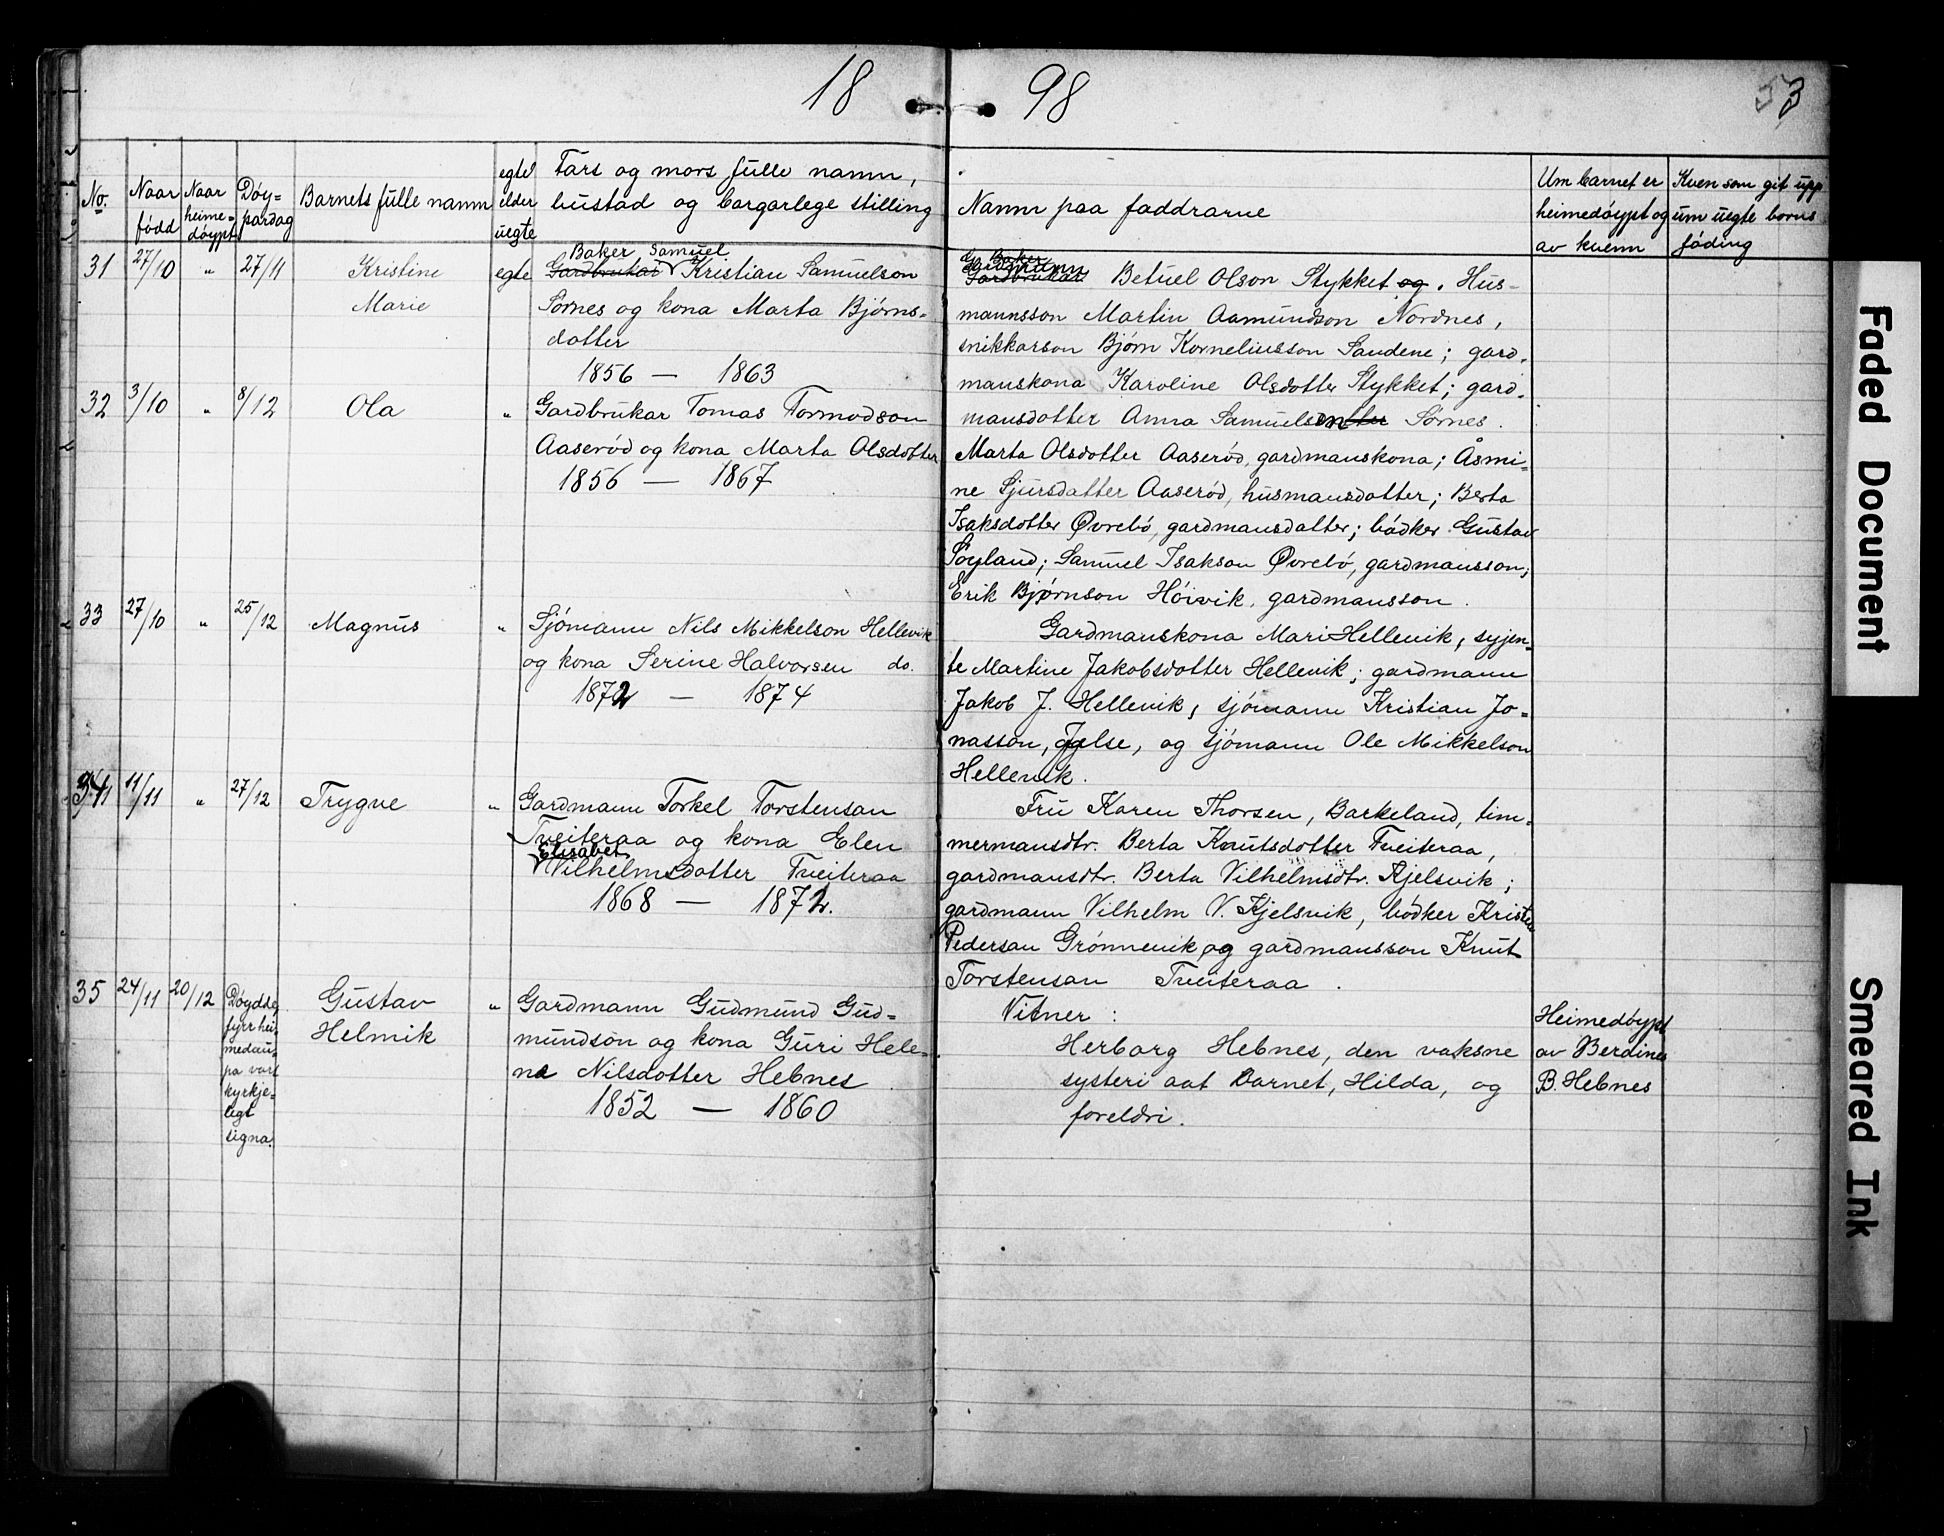 18 98
53
No. Naar fødd Naar heime-døypt Døy-pardag Barnets fulle namn egte elder uegte Fars og mors fulle namn, bustad og borgarlege stilling Namn paa faddrarne Um barnet er heimedøypt og av kvenn Kven som git upp um uegte borns føding
31 27/10 " 27/11 Kristine Marie egte
Baker Samuel
Gardbrukar Kristian Samuelson
Sørnes og kona Marta Bjørns-
dotter
1856 — 1863
Baker
Gardmann
Gardbrukar Betuel Olson Stykket og, Hus-
mannsson Martin Aamundson Nordnes,
snikkarson Bjørn Korneliusson Sandene; gard-
manskona Karoline Olsdotter Stykket; gard-
mansdotter Anna Samuelson Sørnes.
32 3/10 " 8/12 Ola "
Gardbrukar Tomas Tormodson
Aaserød og kona Marta Olsdotter
1856 — 1867
Marta Olsdotter Aaserød, gardmanskona; Åsmi-
ne Sjursdatter Aaserød, husmansdotter; Berta
Isaksdotter Øvrebó, gardmansdatter; bódker Gustav
Søyland; Samuel Isakson Øvrebó, gardmansson;
Erik Bjørnson Hóivik, gardmansson.
33 27/10 " 25/12 Magnus "
Sjómann Nils Mikkelson Hellevik
og kona Serine Halvorsen do.
1872 — 1874
Gardmanskona Mari Hellevik, syjen-
te Martine Jakobsdotter Hellevik; gardmann
Jakob J. Hellevik, sjómann Kristian Jo-
nasson, Jelse, og sjómann Ole Mikkelson
Hellevik.
34 11/11 " 27/12 Trygve "
Gardmann Torkel Torstensan
Tveiteraa og kona Elen
Elisabet
Vilhelmsdotter Tveiteraa
1868 — 1872.
Fru Karen Thorsen, Barkeland, tim-
mermansdtr. Berta Knutsdotter Tveiteraa,
gardmansdtr. Berta Vilhelmsdtr. Kjelsvik;
gardmann Vilhelm V. Kjelsvik, bódker Kristen
Pedersan Grónnevik og gardmansson Knut
Torstensan Tveiteraa.
35 24/11 20/12
Døydde
fyrr hei-
medau-
pa vart
kyrkje-
legt
signa.
Gustav
Helmik
"
Gardmann Gudmund Gud-
mundson og kona Guri Hele-
na Nilsdotter Hebnes
1852 — 1860
Vitner:
Herborg Hebnes, den vaksne
systeri aat barnet, Hilda, og
foreldri.
Heimedøypt
av Berdines
B. Hebnes
Faded Document
Smeared Ink